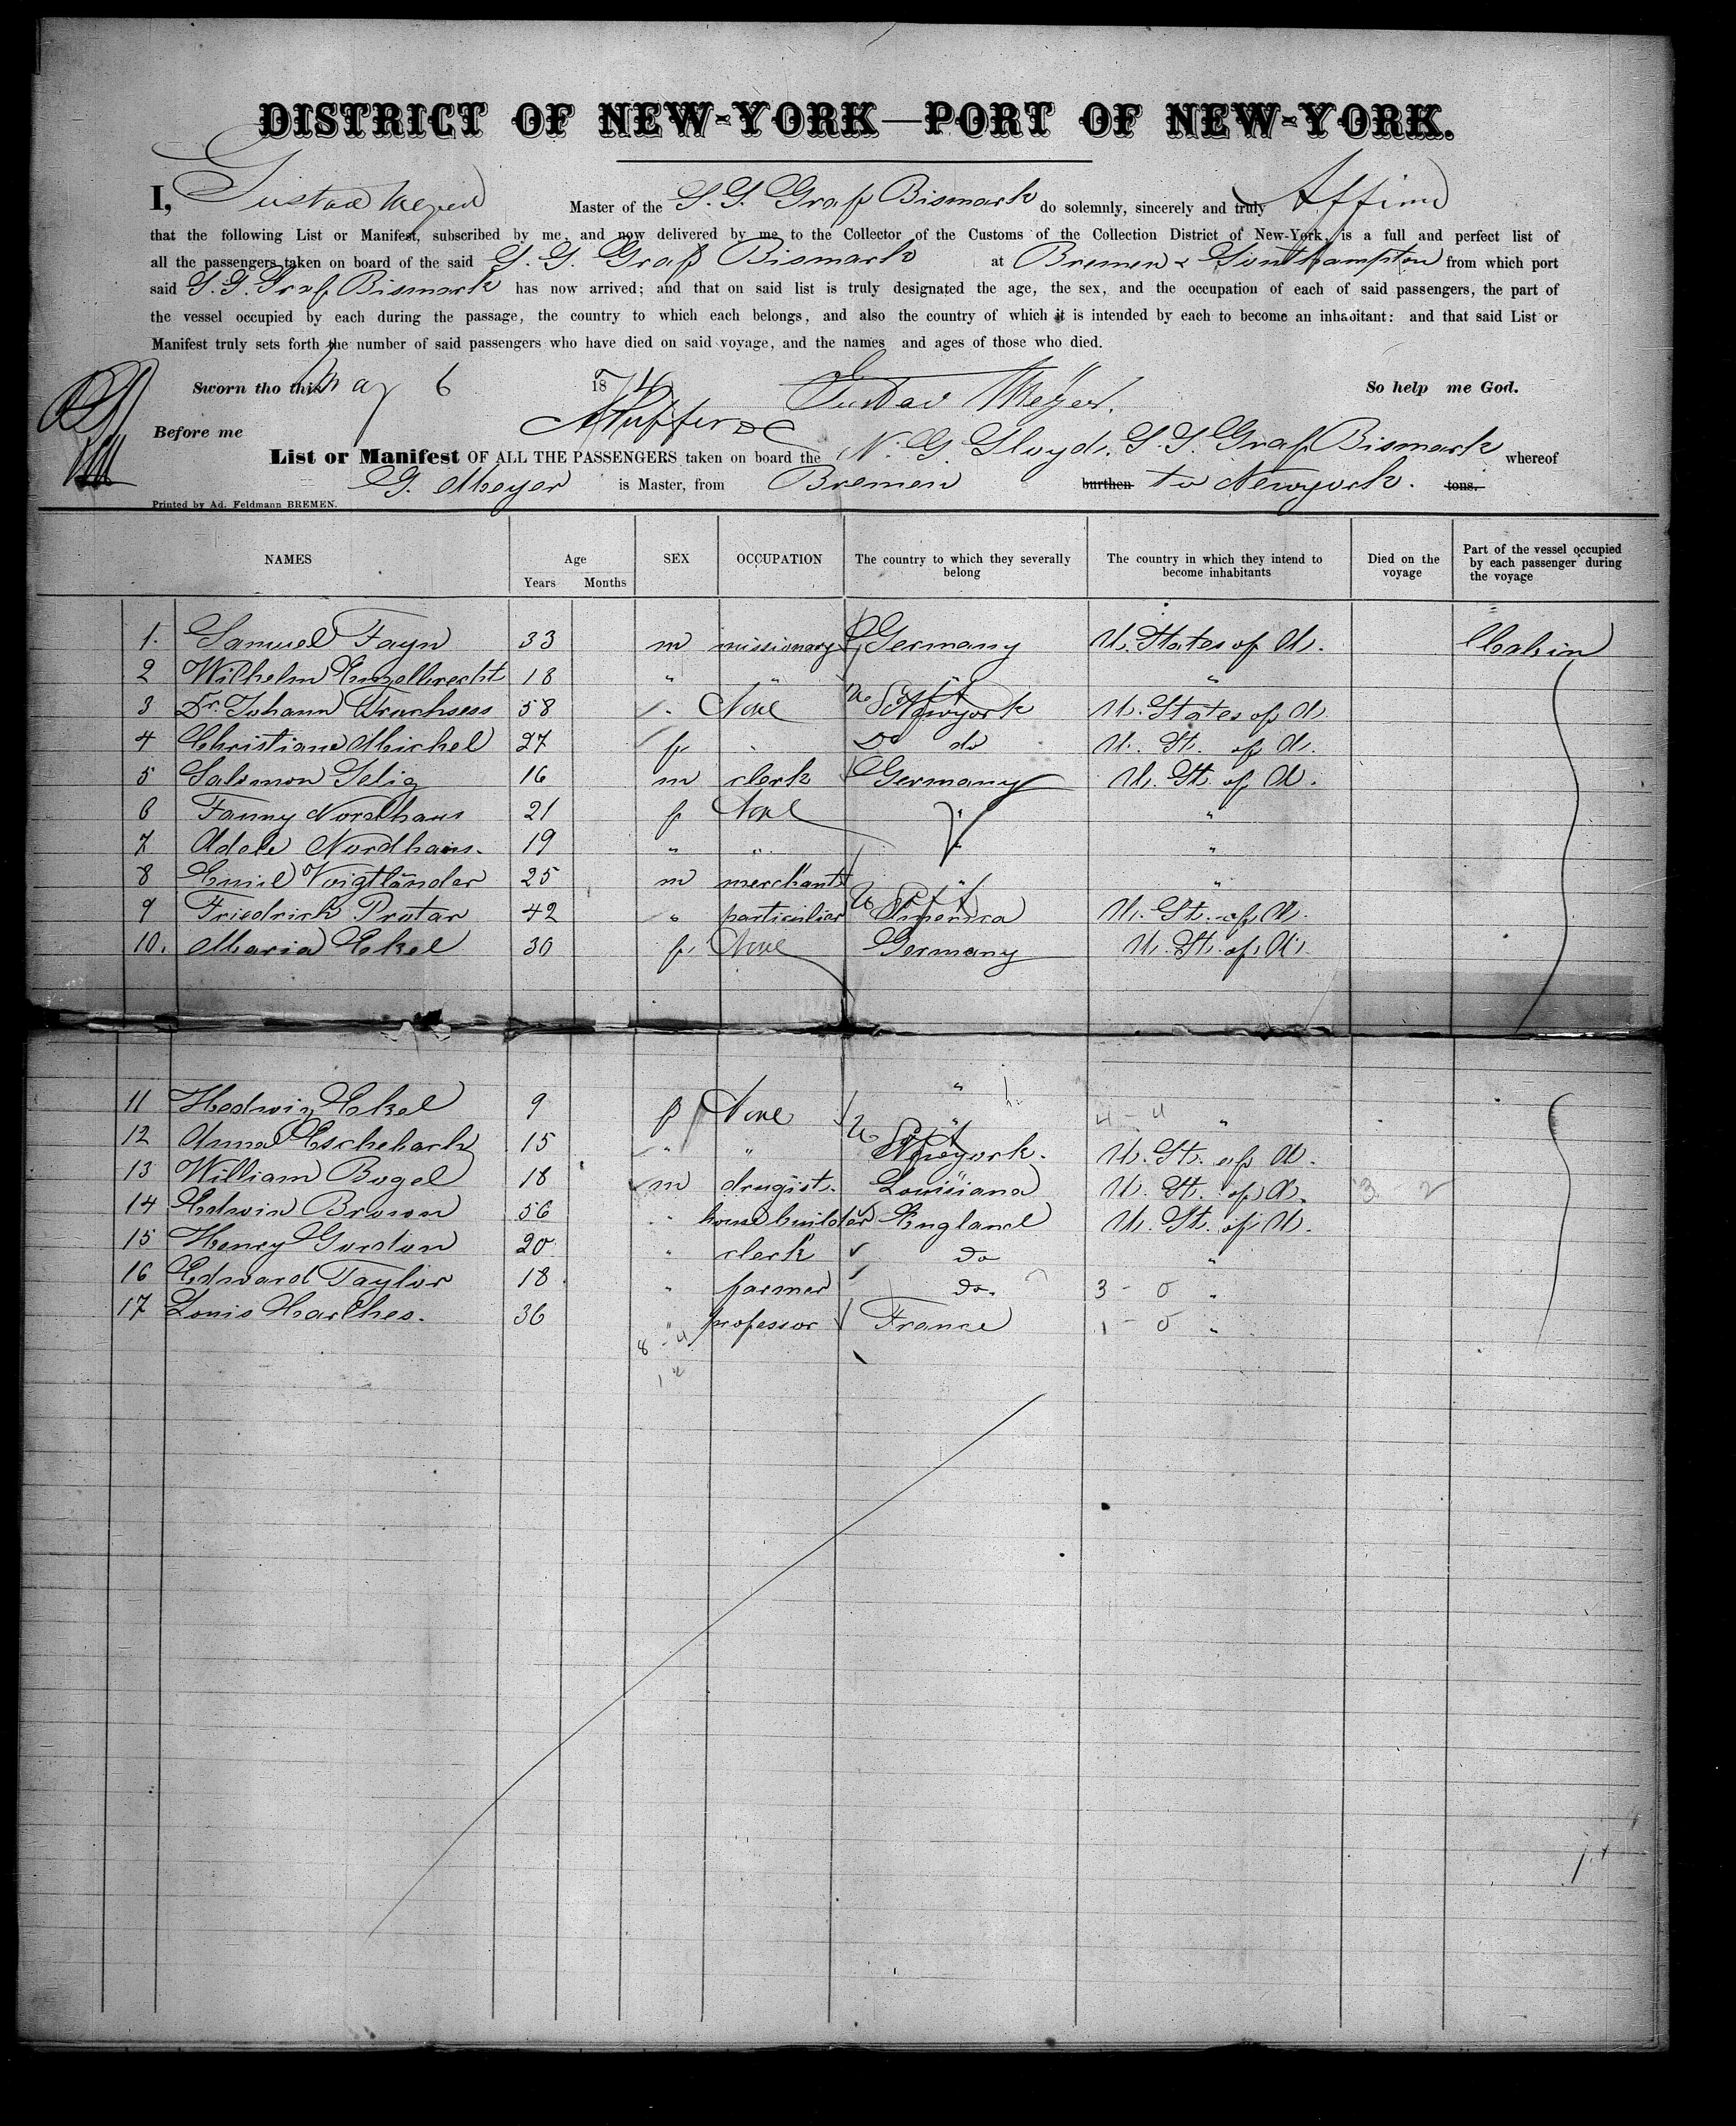 DISTRICT OF NEW-YORK—PORT OF NEW-YORK.
I, Gustav Meyer Master of the S. S. Graf Bismark do solemnly, sincerely and truly Affirm
that the following List or Manifest, subscribed by me, and now delivered by me to the Collector of the Customs of the Collection District of New-York, is a full and perfect list of
all the passengers taken on board of the said S. S. Graf Bismark at Bremen & Southampton from which port
said S. S. Graf Bismark has now arrived; and that on said list is truly designated the age, the sex, and the occupation of each of said passengers, the part of
the vessel occupied by each during the passage, the country to which each belongs, and also the country of which it is intended by each to become an inhabitant: and that said List or
Manifest truly sets forth the number of said passengers who have died on said voyage, and the names and ages of those who died.
Sworn tho this May 6 1874 Gustav Meyer. So help me God.
Before me
List or Manifest OF ALL THE PASSENGERS taken on board the N. G. Lloyd. S. S. Graf Bismark whereof
G. Meyer is Master, from Bremen burthen to Newyork. tons.
Printed by Ad. Feldmann BREMEN.
NAMES Age Years Months SEX OCCUPATION The country to which they severally belong The country in which they intend to become inhabitants Died on the voyage Part of the vessel occupied by each passenger during the voyage
1. Samuel Fayn 33 m missionary Germany U. States of A. Cabin
2 Wilhelm Engelbrecht 18 " " " "
3 Dr. Johann Truchsess 58 " None Newyork U. States of A.
4 Christiane Michel 27 f " do U. St. of A.
5 Salomon Selig 16 m clerk Germany U. St. of A.
6 Fanny Nordhaus 21 f None " "
7 Adele Nordhaus. 19 " " " "
8 Emil Voigtländer 25 m merchant " "
9 Friedrich Protar 42 " particulier America U. St. of A.
10. Maria Ekel 30 f. None Germany U. St. of A.
11 Hedwig Ekel 9 f None " "
12 Anna Eschebach 15 " " Newyork. U. St. of A.
13 William Bogel 18 m drugist. Louisiana U. St. of A. 3 - 2
14 Edwin Brown 56 " house builder England U. St. of A.
15 Henry Gordon 20 " clerk do "
16 Edward Taylor 18 " farmer do. 3 - 0 "
17 Louis Carthes. 36 " professor France 1 - 0 "
8 - 4